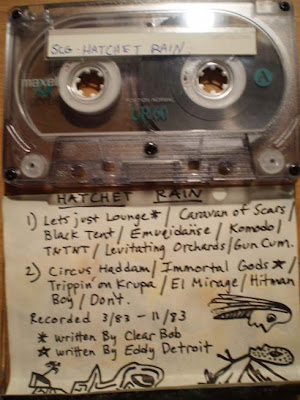 SCG - HATCHET RAIN
maxell
POSITION · NORMAL
A
UR 60
HATCHET RAIN
1) Lets just Lounge* / Caravan of Scars /
Black Tent / Emuqidanse / Komodo /
TNTNT / Levitating Orchards / Gun Cum.
2) Circus Haddam / Immortal Gods ☆ /
Trippin' on Krupa / El Mirage / Hitman
Boy / Don't.
Recorded 3/83 - 11/83
* written By Clear Bob
☆ written By Eddy Detroit